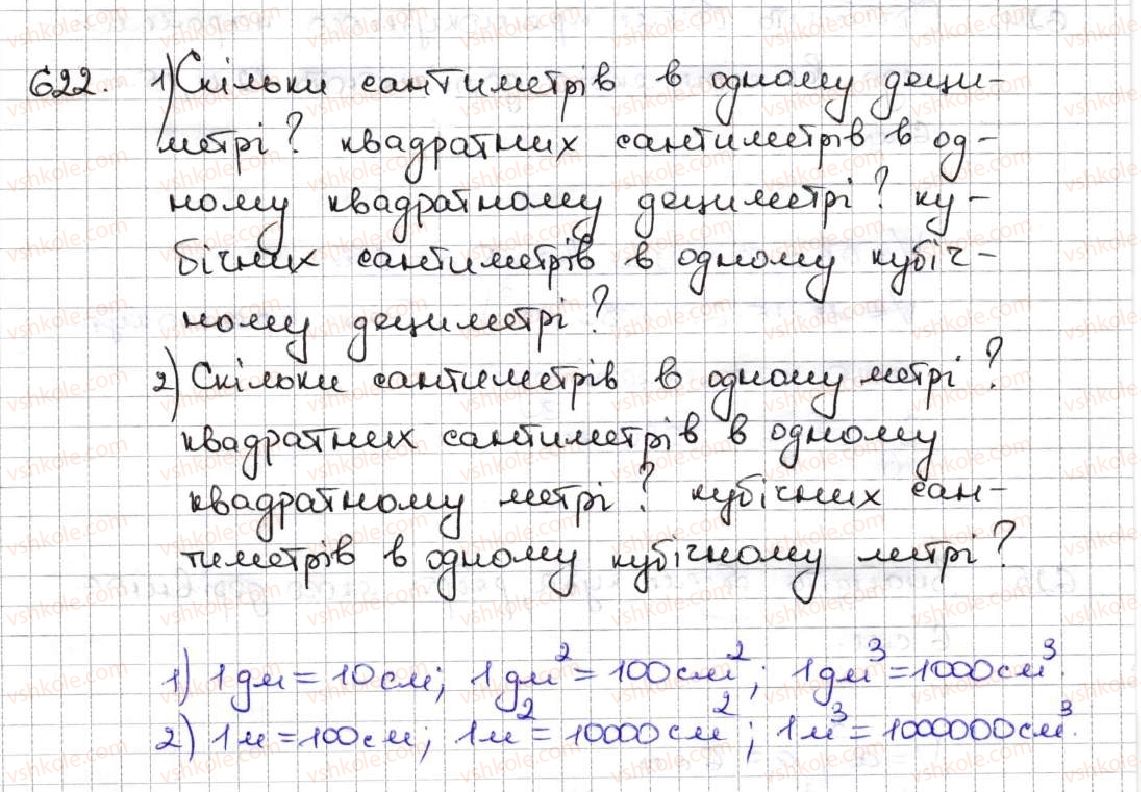 622. 1) Скільки сантиметрів в одному деци-
метрі? квадратних сантиметрів в од-
ному квадратному дециметрі? ку-
бічних сантиметрів в одному кубіч-
ному дециметрі?
2) Скільки сантиметрів в одному метрі?
квадратних сантиметрів в одному
квадратному метрі? кубічних сан-
тиметрів в одному кубічному метрі?
1) 1 дм = 10 см; 1 дм² = 100 см²; 1 дм³ = 1000 см³.
2) 1 м = 100 см; 1 м² = 10000 см²; 1 м³ = 1000000 см³.
vshkole.com